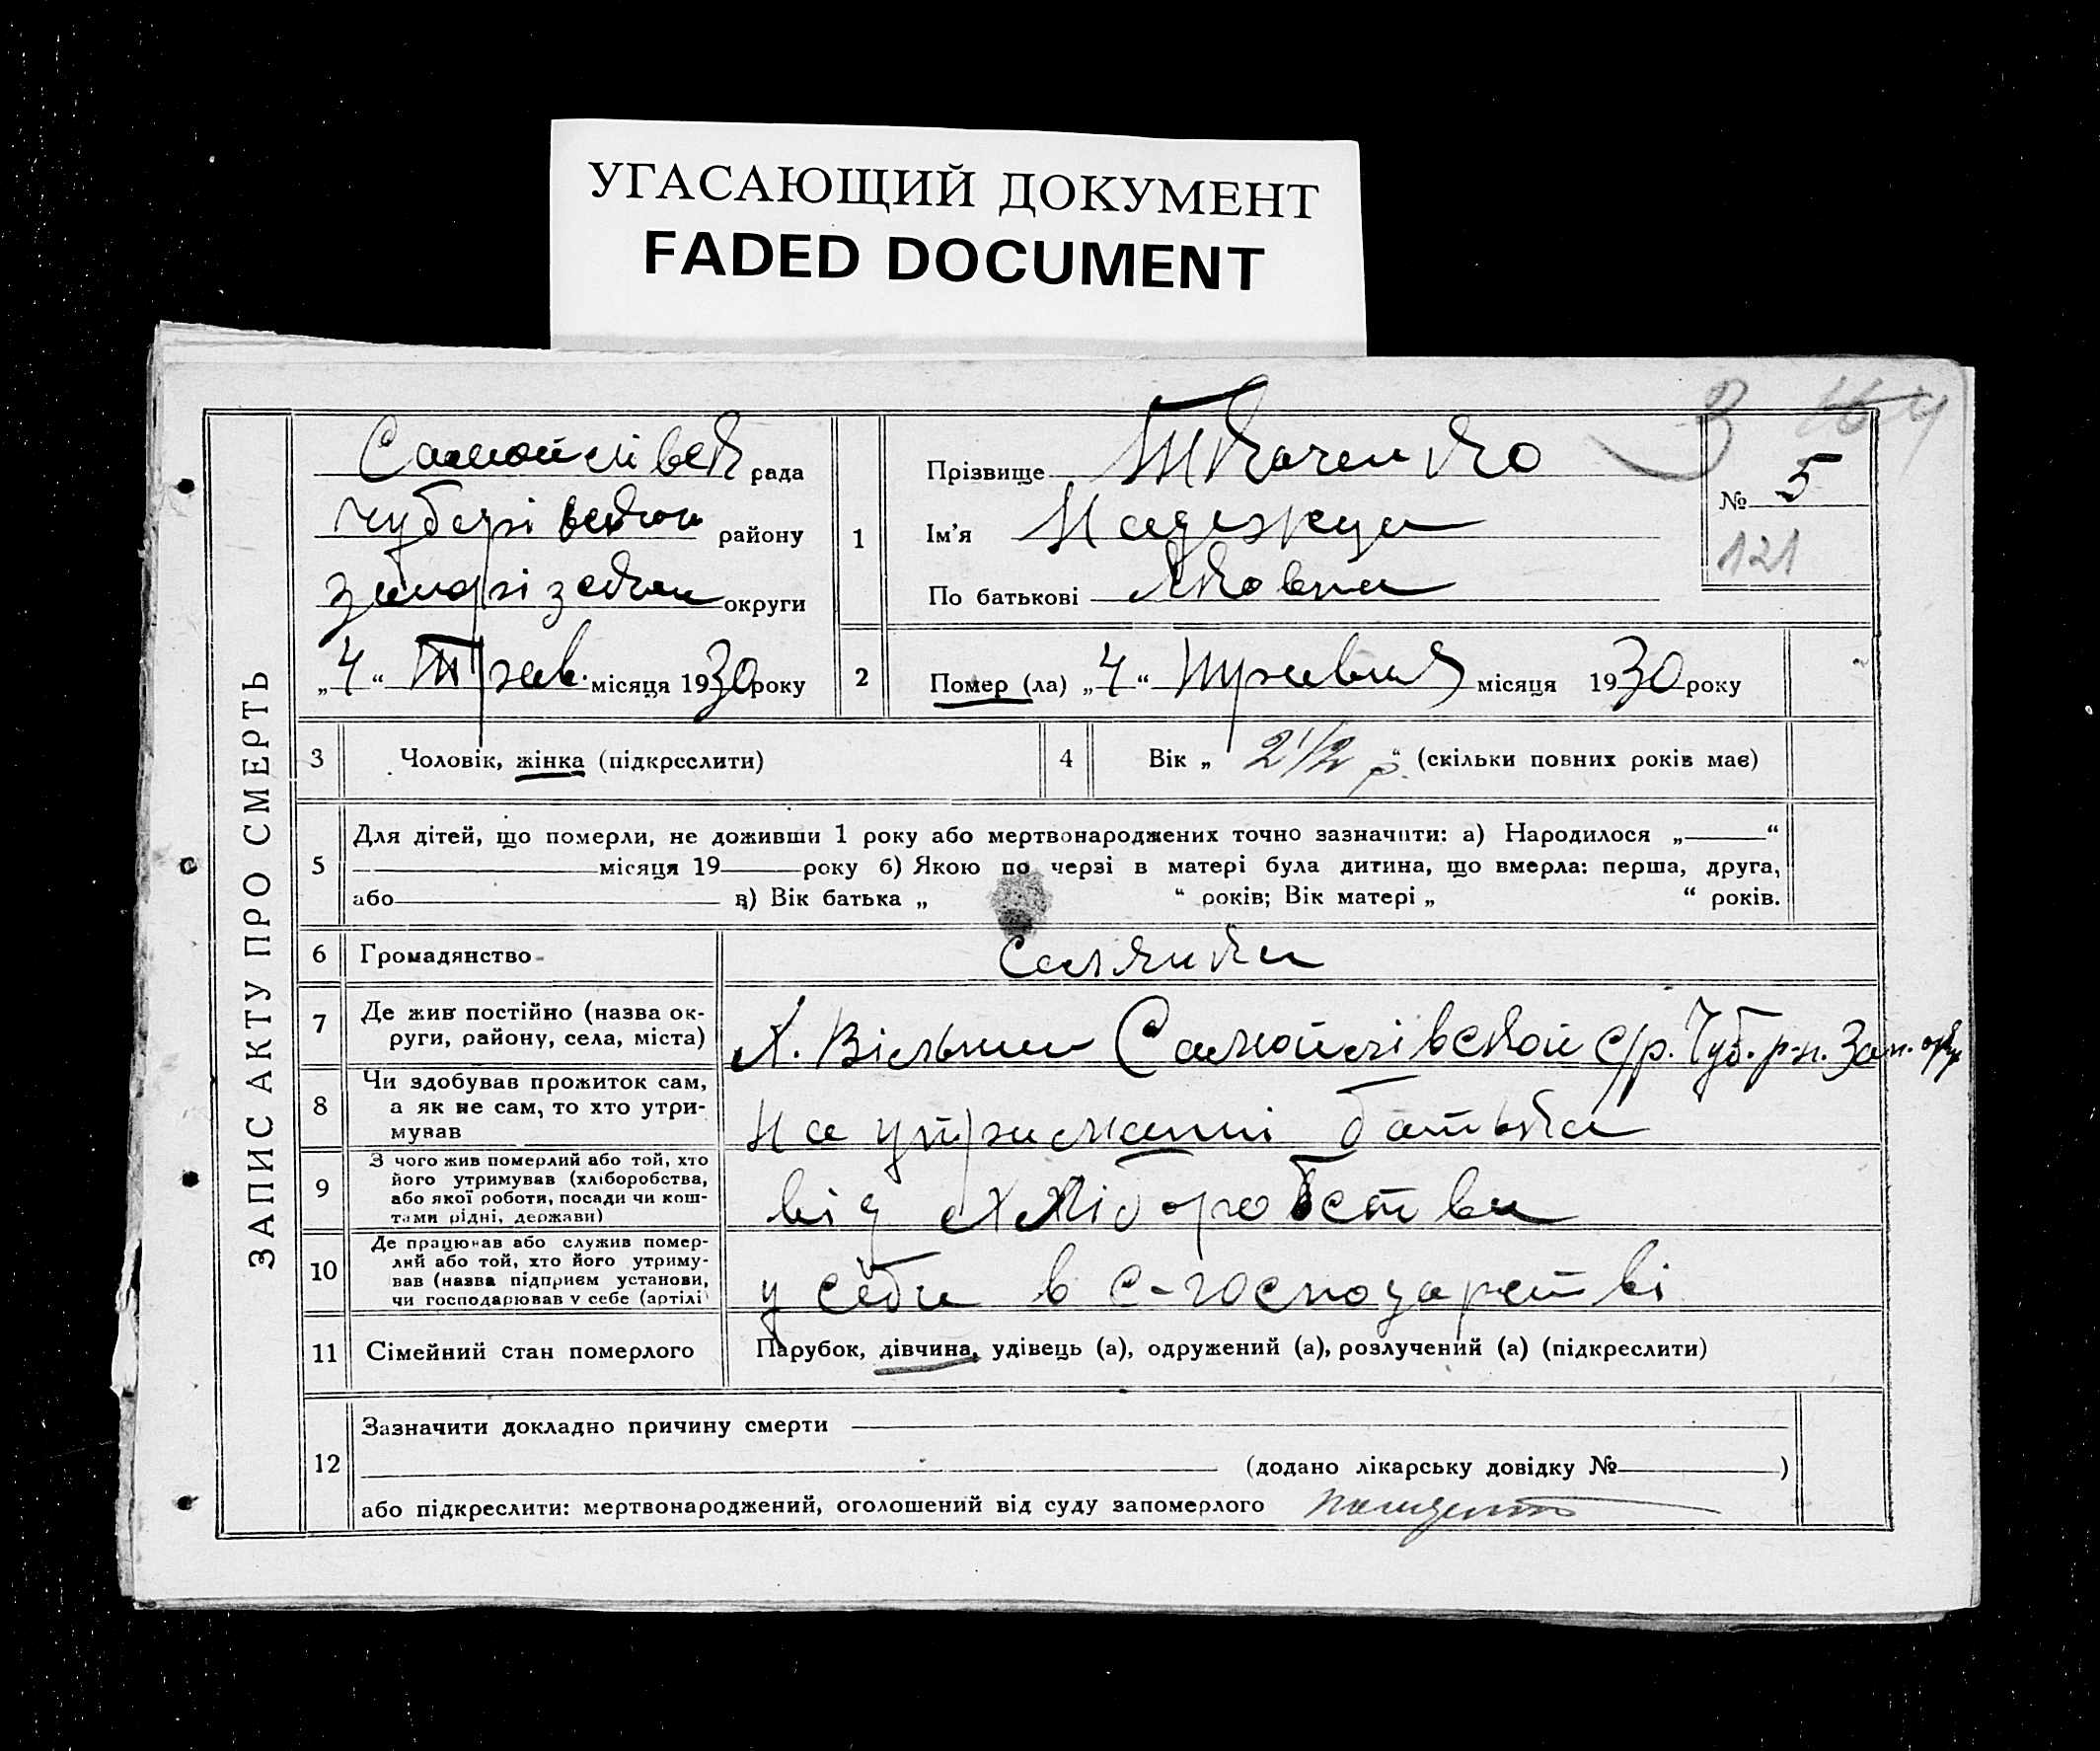 УГАСАЮЩИЙ ДОКУМЕНТ
FADED DOCUMENT
ЗАПИС АКТУ ПРО СМЕРТЬ
Самойлівськ рада
Чубарівськой району
Запорізської округи
„4“ Трав. місяця 1930 року
1
Прізвище Ткаченко
Ім'я Надежда
По батькові Яковна
№ 5
121
2 Помер (ла) „4“ Травня місяця 1930 року
3 Чоловік, жінка (підкреслити)
4 Вік „ 2 1/2 р. “ (скільки повних років має)
5 Для дітей, що померли, не доживши 1 року або мертвонароджених точно зазначити: а) Народилося „ “
місяця 19 року б) Якою по черзі в матері була дитина, що вмерла: перша, друга,
або в) Вік батька „ “ років; Вік матері „ “ років.
6 Громадянство Селянка
7 Де жив постійно (назва ок-
руги, району, села, міста) Х. Вільний Самойлівской с/р. Чуб. р-н. Зап. окр
8 Чи здобував прожиток сам,
а як не сам, то хто утри-
мував На утриманні батька
9 З чого жив померлий або той, хто
його утримував (хліборобства,
або якої роботи, посади чи кош-
тами рідні, держави) від хліборобства
10 Де працював або служив помер-
лий або той, хто його утриму-
вав (назва підприєм установи,
чи господарював у себе (артілі) у себе в с-господарстві
11 Сімейний стан померлого Парубок, дівчина, удівець (а), одружений (а), розлучений (а) (підкреслити)
12 Зазначити докладно причину смерти
(додано лікарську довідку № )
або підкреслити: мертвонароджений, оголошений від суду запомерлого